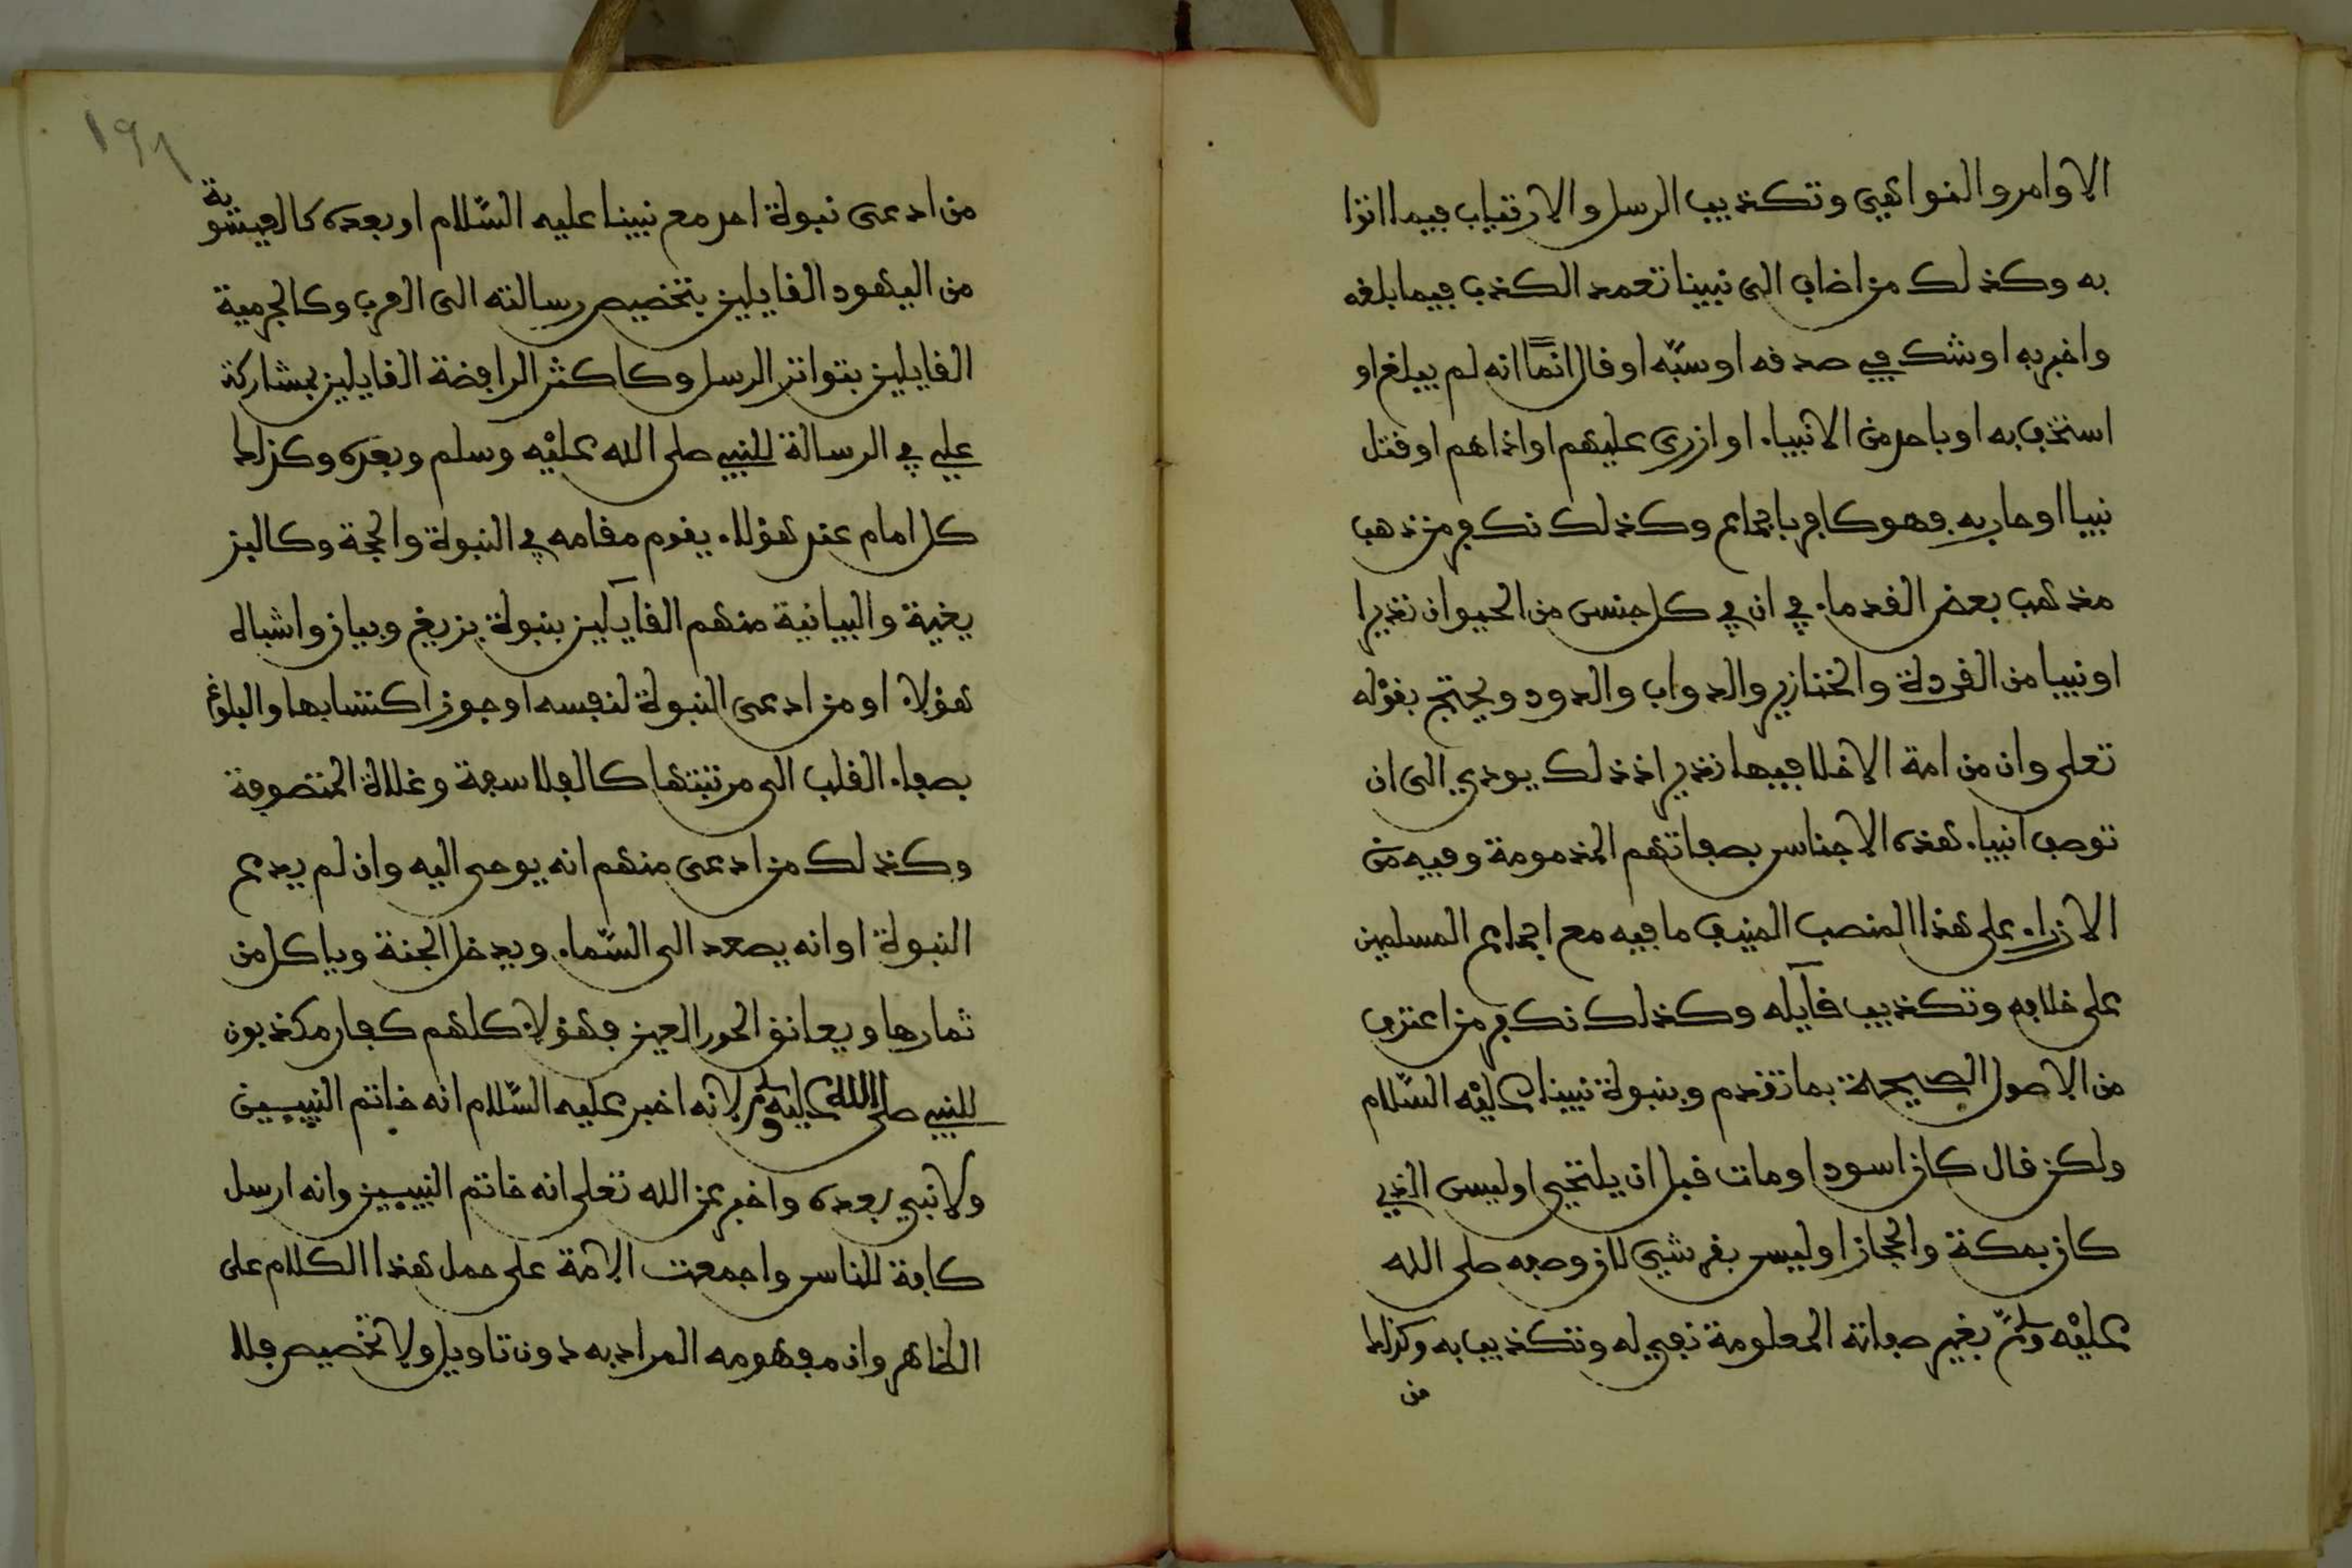 الاوامر والنواهي وتكذيب الرسل والارتياب فيما اتوا
به وكذلك من اضاف الى نبينا تعمد الكذب فيما بلغه
واخبر به اوشك في صدقه اوسبّه اوقال انما انه لم يبلغ او
استخف به اوباحد من الانبياء اوازرى عليهم اواذاهم اوقتل
نبيا اوحاربه فهو كافر باجماع وكذلك نكفر من ذهب
مذهب بعض القدماء في ان في كل جنس من الحيوان نذيرا
اونبيا من القردة والخنازير والدواب والدود ويحتج بقوله
تعلى وان من امة الا خلا فيها نذير اذ ذلك يودي الى ان
توصف انبياء هذه الاجناس بصفاتهم المذمومة وفيه من
الازراء على هذا المنصب المنيف ما فيه مع اجماع المسلمين
على خلافه وتكذيب قآيله وكذلك نكفر من اعترف
من الاصول الصيحة بما تقدم وبنبوة نبينا عليه السّلام
ولكن قال كان اسود اومات قبل ان يلتحي اوليس الذي
كان بمكة والحجاز اوليس بقرشي لان وصفه صلى الله
عليه وسلم بغير صفاته المعلومة نفي له وتكذيب به وكذلك
من
١٩٨
من ادعى نبوة احد مع نبينا عليه السّلام اوبعده كالعيسوية
من اليهود القايلين بتخصيص رسالته الى العرب وكالجرمية
القايلين بتواتر الرسل وكاكثر الرافضة القايلين بمشاركة
علي في الرسالة للنبي صلى الله عليه وسلم وبعده وكذلك
كل امام عند هؤلاء يقوم مقامه في النبوة والحجة وكالبز
يغية والبيانية منهم القآيلين بنبوة بزيغ وبيان واشباه
هؤلاء اومن ادعى النبوة لنفسه اوجوز اكتسابها والبلوغ
بصفاء القلب الى مرتبتها كالفلاسفة وغلاة المتصوفة
وكذلك من ادعى منهم انه يوحى اليه وان لم يدع
النبوة اوانه يصعد الى السّماء ويدخل الجنة وياكل من
ثمارها ويعانق الحور العين فهؤلاء كلهم كفار مكذبون
للنبي صلى الله عليه وسلم لانه اخبر عليه السّلام انه خاتم النبيين
ولا نبي بعده واخبر عن الله تعلى انه خاتم النبيين وانه ارسل
كافة للناس واجمعت الامة على حمل هذا الكلام على
الظاهر وان مفهومه المراد به دون تاويل ولا تخصيص فلا